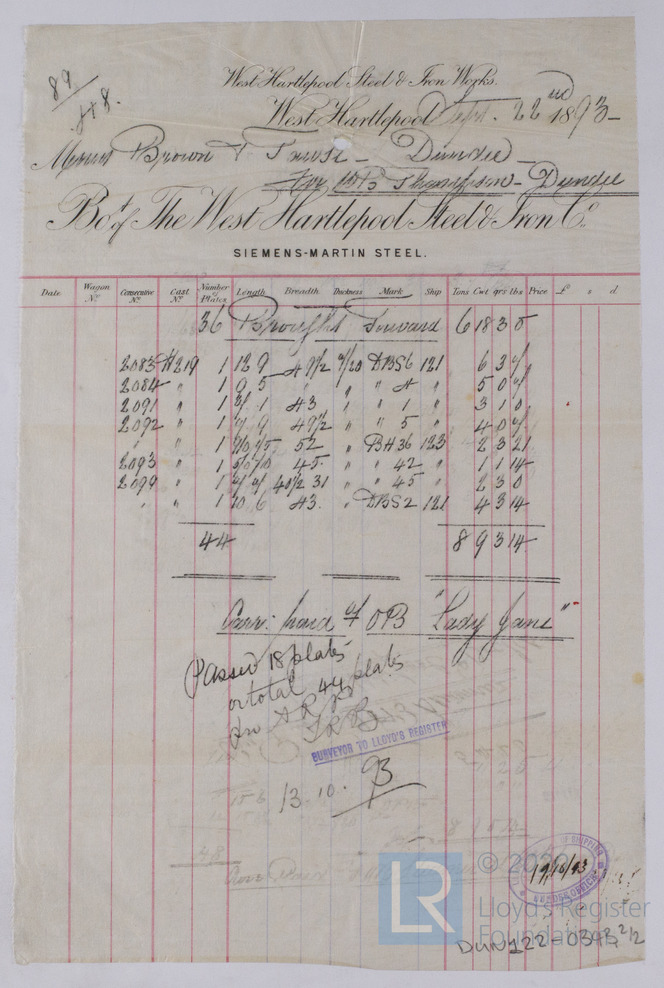 89
448.
West Hartlepool Steel & Iron Works.
West Hartlepool Sept. 22nd 1893
Messrs Brown & Dundee
For Thompson Dundee
Bot of The West Hartlepool Steel & Iron Co.
SIEMENS-MARTIN STEEL.
Date Wagon No. Consecutive No. Cast No. Number of Plates Length Breadth Thickness Mark Ship Tons Cwt qrs lbs Price £ s d.
36 Brought Forward 6 18 3 0
2083 1 12 9 49 1/2 /20 DBS6 121 6 3
2084 " 1 9 5 " " " 5 0
2091 " 1 1 43 " " 1 " 3 1 0
2092 " 1 7 9 49 1/2 " " 5 " 4 0
" " 1 52 " BH36 123 2 3 21
2093 " 1 45 " " 42 " 1 1 14
2099 " 1 40 1/2 31 " " 45 " 2 3 0
" " 1 10 6 43 " DBS2 121 4 3 14
44 8 9 3 14
Carr: paid "Lady Jane"
Passed 18 plates
or total 44 plates
SURVEYOR TO LLOYD'S REGISTER
13.10.93
19/10/93
© 2020
LR
Lloyd's Register
Foundation
DUN122-0343 2/2